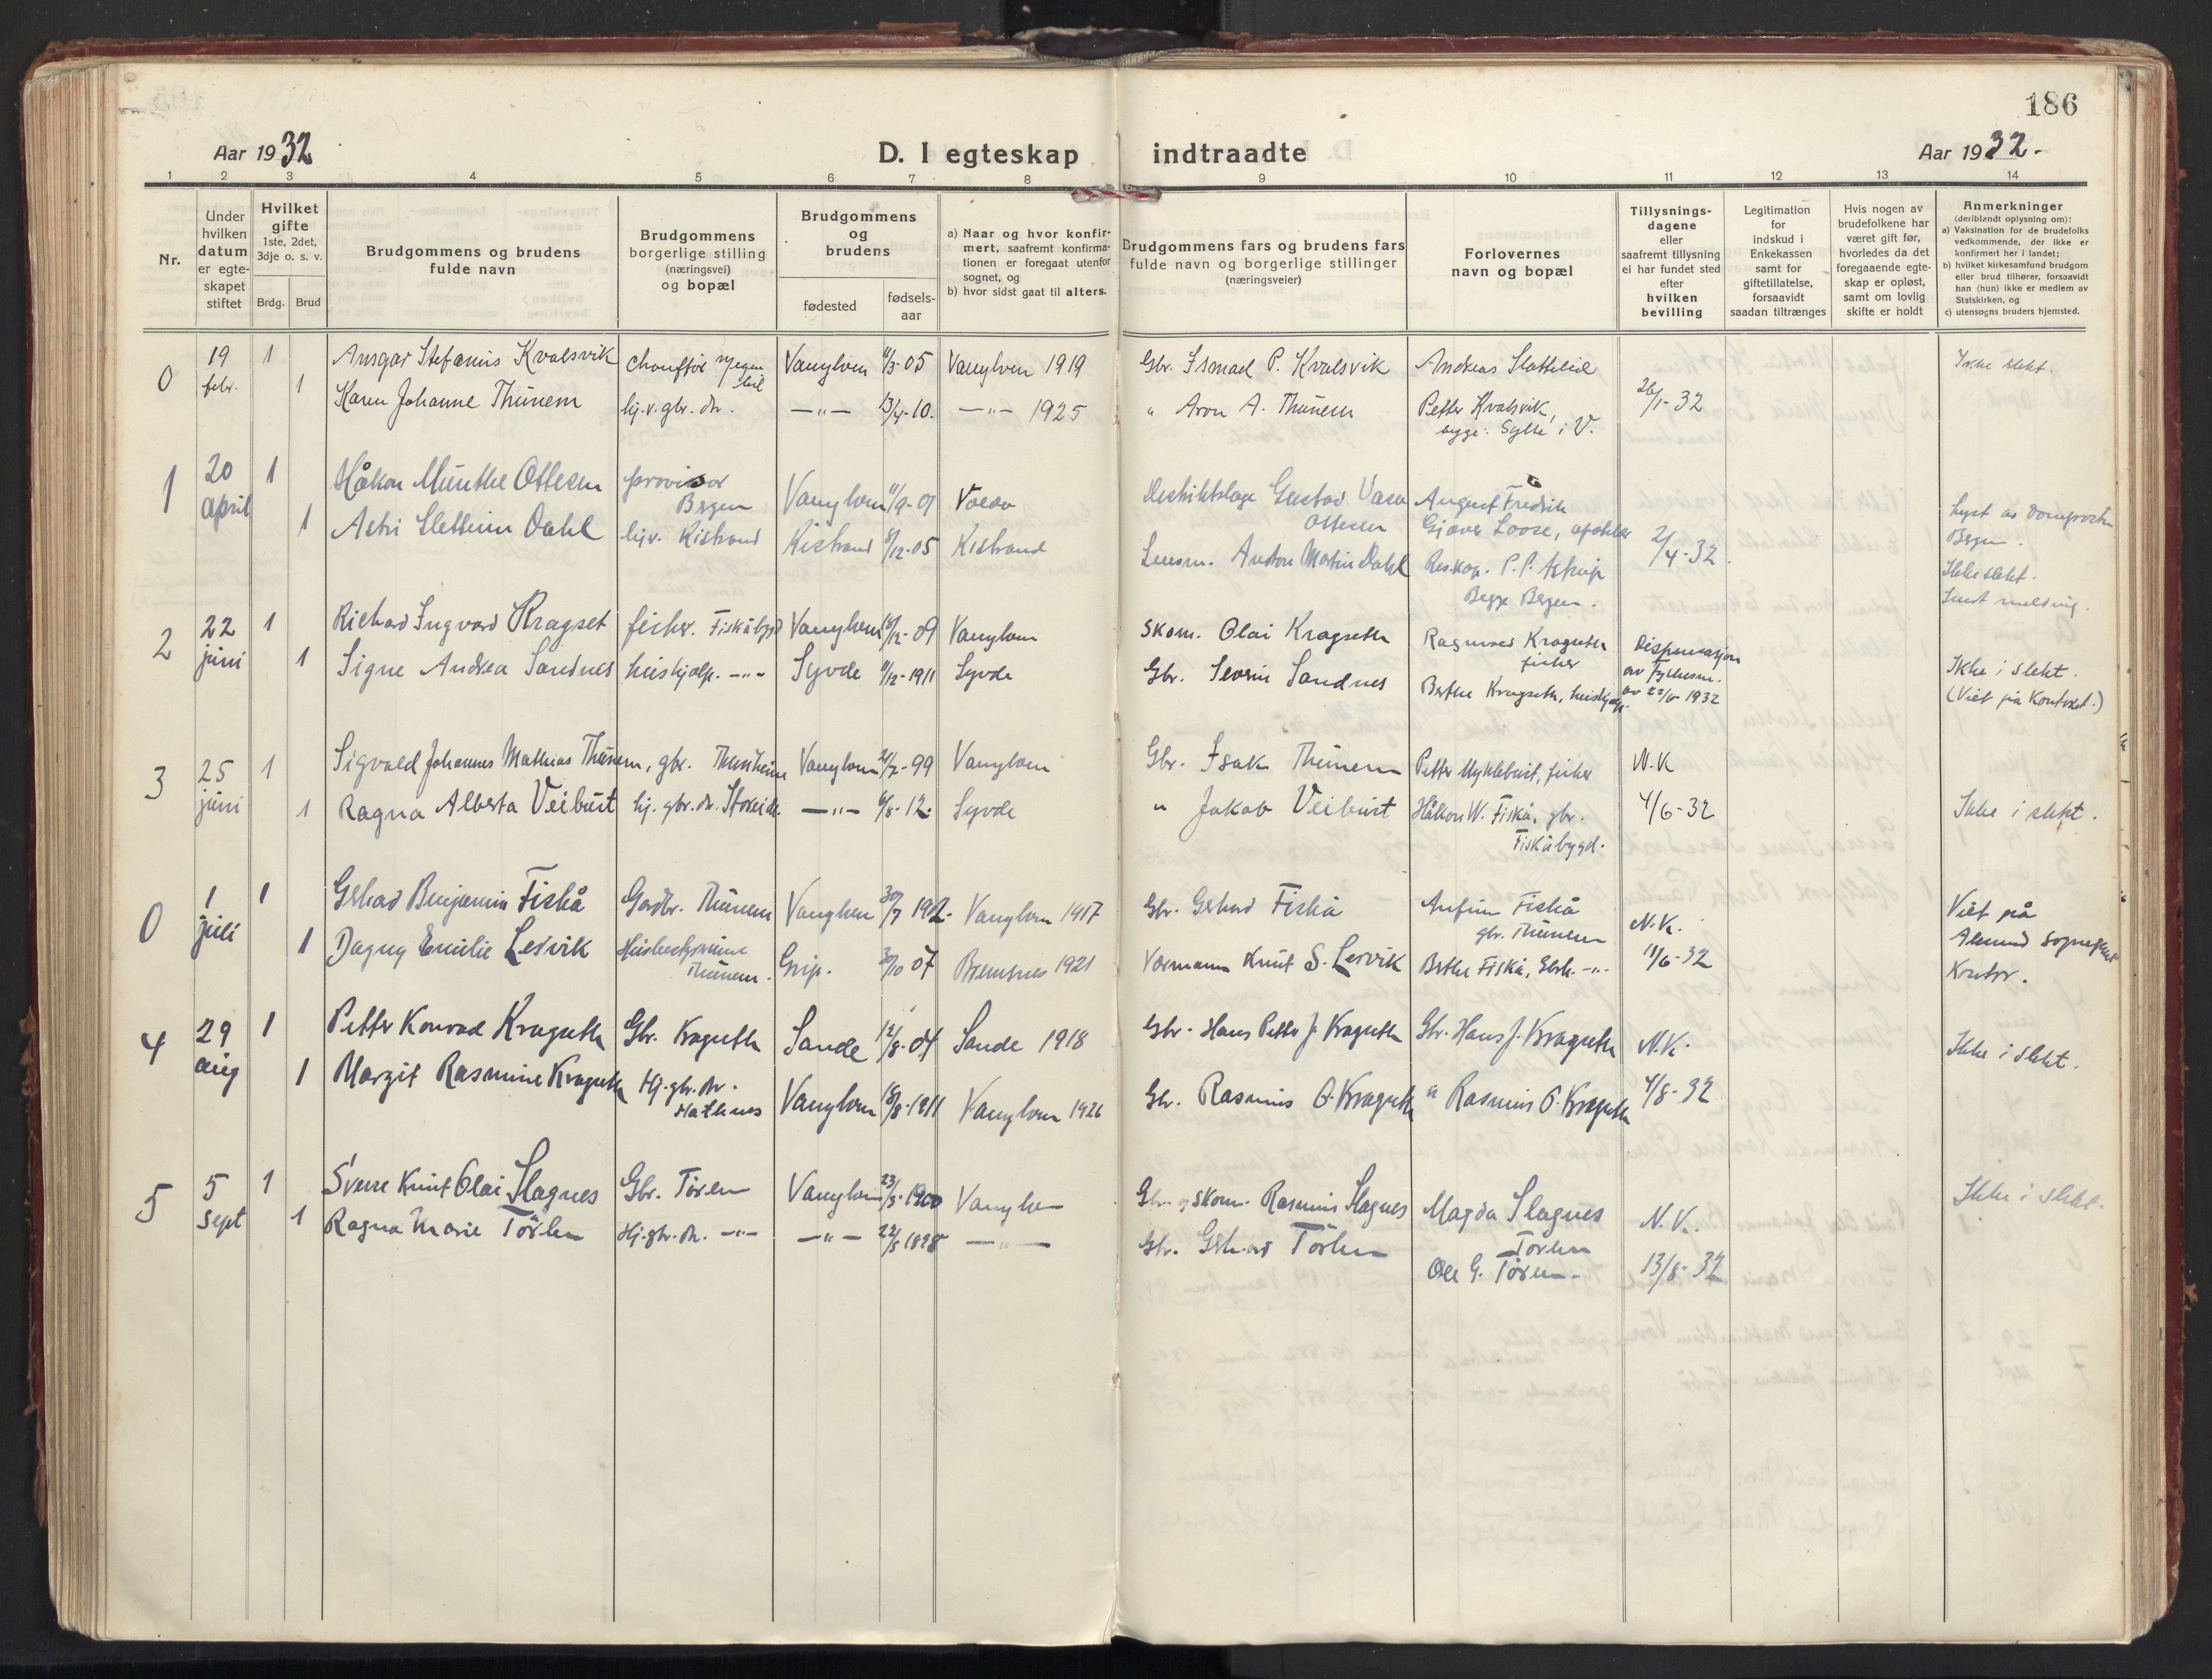 186
Aar 1932
D. I egteskap indtraadte
Aar 1932.
1 2 3 4 5 6 7 8 9 10 11 12 13 14
Nr.
Under hvilken datum er egte-skapet stiftet
Hvilket gifte 1ste, 2det, 3dje o. s. v.
Brdg. Brud
Brudgommens og brudens fulde navn
Brudgommens borgerlige stilling (næringsvei) og bopæl
Brudgommens og brudens
fødested
fødsels-aar
a) Naar og hvor konfir-mert, saafremt konfirma-tionen er foregaat utenfor sognet, og
b) hvor sidst gaat til alters.
Brudgommens fars og brudens fars fulde navn og borgerlige stillinger (næringsveier)
Forlovernes navn og bopæl
Tillysnings-dagene eller saafremt tillysning ei har fundet sted efter hvilken bevilling
Legitimation for indskud i Enkekassen samt for giftetillatelse, forsaavidt saadan tiltrænges
Hvis nogen av brudefolkene har været gift før, hvorledes da det foregaaende egte-skap er opløst, samt om lovlig skifte er holdt
Anmerkninger (deriblandt oplysning om):
a) Vaksination for de brudefolks vedkommende, der ikke er konfirmert her i landet;
b) hvilket kirkesamfund brudgom eller brud tilhører, forsaavidt han (hun) ikke er medlem av Statskirken, og
c) utensogns bruders hjemsted.
0 19 febr. 1 Ansgar Stefanus Kvalsvik chauffør Vanylven 05 Vanylven 1919 Gbr. Ismael P. Kvalsvik Andreas Slettelid Ikke slekt.
1 Karen Johanne Thunem hj.v.gbr. dr. —"— 13/4-10. —"— 1925 " Aron A. Thunem Petter Kvalsvik, 26/1-32
begge: Sylte i V.
1 20 april 1 Håkon Munthe Ottesen provisor Bergen Vanylven 11/9-01 Distriktslæge Gustav Vasa Ottesen August Fredrik Gjæver Loose, apoteker
1 Astri Slettum Dahl hjv. Kistrand Kistrand 8/12-05 Kistrand Lensm. Anton Martin Dahl Res.kap. P. P. Astrup 2/4-32.
Begge Bergen.
Lyst av domprosten Bergen.
Ikke slekt.
Sendt melding.
2 22 juni 1 Richard Ingvard Kragset fisker. Fiskåbygd Vanylven 09 Vanylven Skom. Olai Kragseth Ragnvald Kragseth fisker Dispensasjon av Fylkesm.
1 Signe Andrea Sandnes hushjelp. —"— Syvde 11/12-1911 Syvde Gbr. Severin Sandnes Berthe Kragseth, hushjelp. 1932 Ikke i slekt.
(Viet på Kontoret.)
3 25 juni 1 Sigvald Johannes Mathias Thunem, gbr. Thunheim Vanylven 99 Vanylven Gbr. Isak Thunem Petter Myklebust, fisker N.K
1 Ragna Alberta Veibust hj. gbr. dr. Storeide. —"— 6/8-12. Syvde " Jakob Veibust Håkon W. Fiskå, gbr. 4/6-32 Ikke i slekt.
Fiskåbygd.
0 1 juli 1 Gerhard Benjamin Fiskå Gardbr. Thunem Vanylven 30/7 1902. Vanylven 1917 Gbr. Gerhard Fiskå Anfinn Fiskå N.K. Viet på
gbr. Thunem
1 Dagny Emilie Lervik Husbestyrerinne Thunem. Grip. 30/10 07 Bremsnes 1921 Værmann Knut S. Lervik Berthe Fiskå, —"— 11/6-32 Ålesund Sogneprest Kontor.
4 29 aug 1 Petter Konrad Kragseth Gbr. Kragseth Sande 12/8-04 Sande 1918 Gbr. Hans Petter J. Kragseth Gbr. Hans J. Kragseth N.K. Ikke i slekt.
1 Margit Rasmine Kragseth Hj. gbr. dr. Vanylven 18/8-1911 Vanylven 1926 Gbr. Rasmus O. Kragseth " Rasmus O. Kragseth 4/8-32
5 5 sept 1 Sverre Knut Olai Slagnes Gbr. Tørlen Vanylven 23/3-1900 Vanylven Gbr. og skom. Rasmus Slagnes Magda Slagnes N.K. Ikke i slekt.
Tørlen
1 Ragna Marie Tørlen Hj. gbr. dr. —"— —"— 22/5 1898 —"— Gbr. Gerhard Tørlen Ole G. Tørlen. 13/8-32